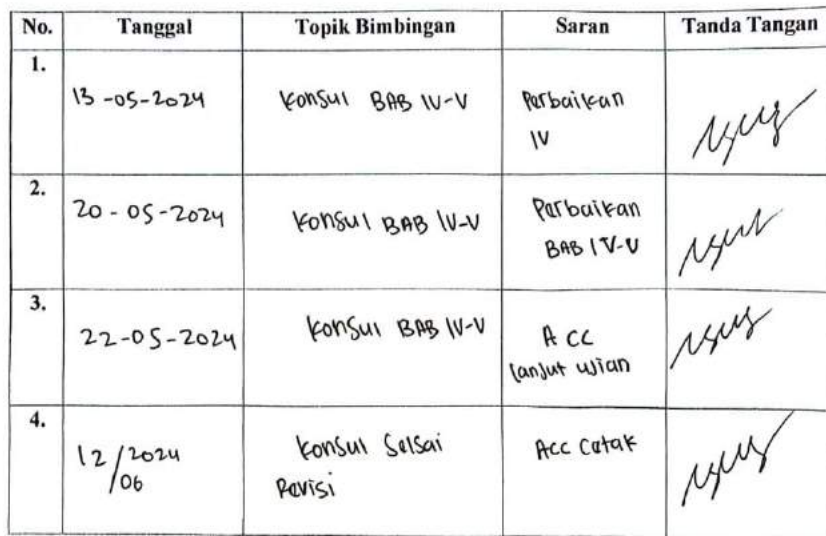 No. Tanggal Topik Bimbingan Saran Tanda Tangan
1.
13-05-2024 Konsul BAB IV-V Perbaikan
IV
2.
20-05-2024 Konsul BAB IV-V Perbaikan
BAB IV-V
3.
22-05-2024 Konsul BAB IV-V ACC
lanjut ujian
4.
12/2024 Konsul Selsai Acc Cetak
/06 Revisi